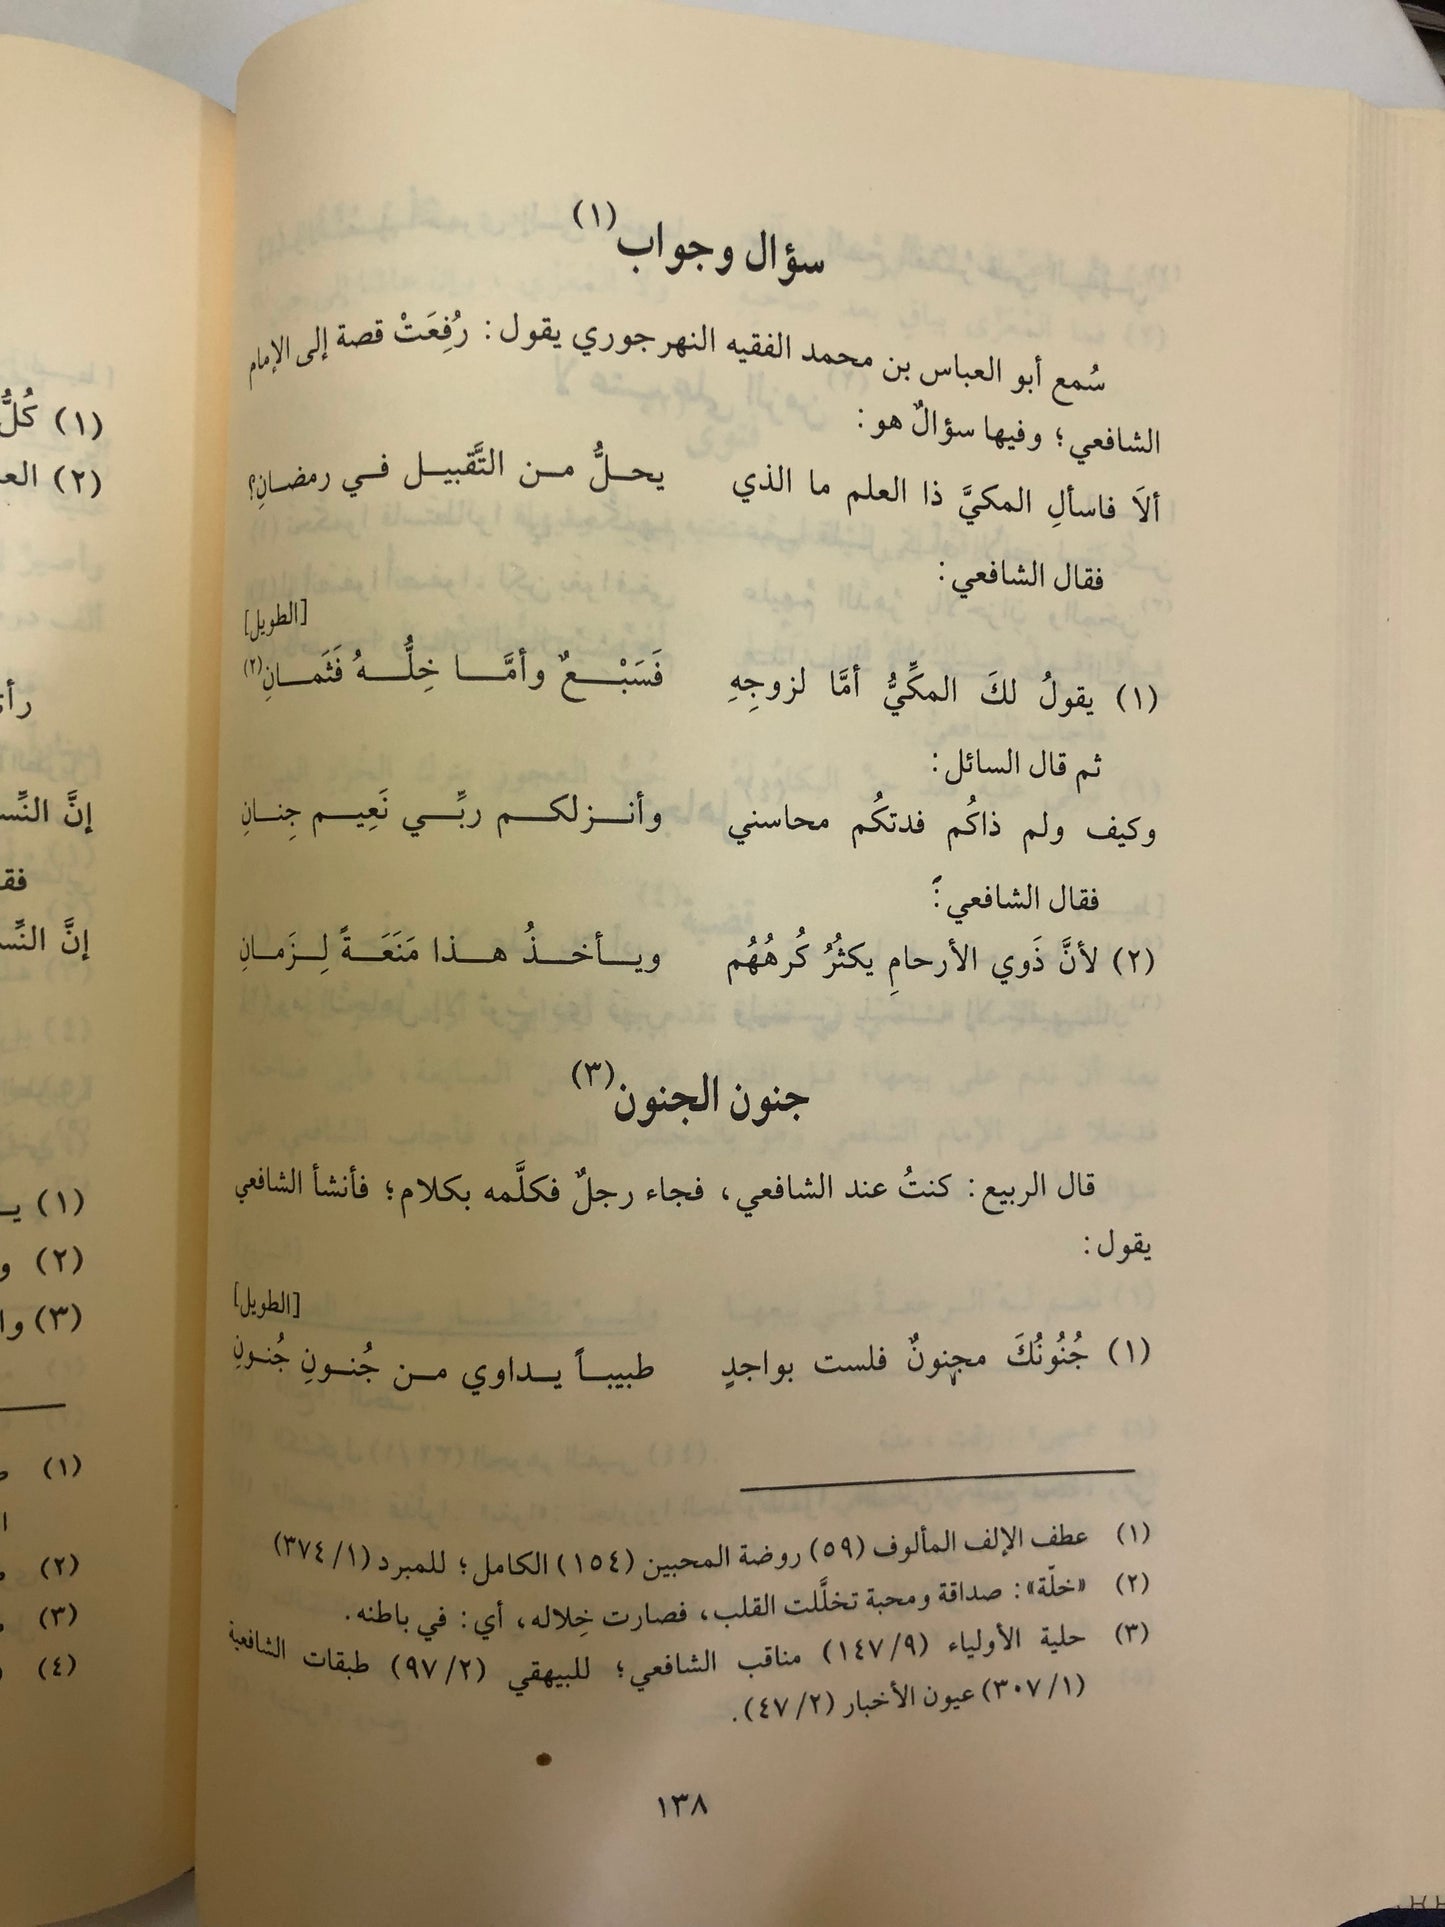 سؤال وجواب(١)
سُمع أبو العباس بن محمد الفقيه النهرجوري يقول: رُفِعَتْ قصة إلى الإمام
الشافعي؛ وفيها سؤالٌ هو:
ألاَ فاسألِ المكيَّ ذا العلم ما الذي يحلُّ من التَّقبيل في رمضانِ؟
فقال الشافعي:
[الطويل]
(١) يقولُ لكَ المكِّيُّ أمَّا لزوجِهِ فَسَبْعٌ وأمَّا خِلُّهُ فَثَمانِ(٢)
ثم قال السائل:
وكيف ولم ذاكُم فدتكُم محاسني وأنزلكم ربِّي نَعِيم جِنانِ
فقال الشافعي:
(٢) لأنَّ ذَوي الأرحامِ يكثُرُ كُرهُهُم ويأخذُ هذا مَنَعَةً لِزَمانِ
جنون الجنون(٣)
قال الربيع: كنتُ عند الشافعي، فجاء رجلٌ فكلَّمه بكلام؛ فأنشأ الشافعي
يقول:
[الطويل]
(١) جُنُونُكَ مجنونٌ فلست بواجدٍ طبيباً يداوي من جُنونِ جُنونِ
(١) عطف الإلف المألوف (٥٩) روضة المحبين (١٥٤) الكامل؛ للمبرد (٣٧٤/١)
(٢) «خلّة»: صداقة ومحبة تخلَّلت القلب، فصارت خِلاله، أي: في باطنه.
(٣) حلية الأولياء (١٤٧/٩) مناقب الشافعي؛ للبيهقي (٩٧/٢) طبقات الشافعية
(٣٠٧/١) عيون الأخبار (٤٧/٢).
١٣٨
(١) كُلُّ
(٢)
إنَّ
إنَّ
(١)
(٢)
(٣)
(١)
(٢)
(٣)
(٤)